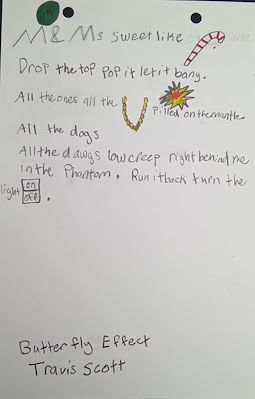 M
M & Ms sweet like
Drop the top pop it let it bang.
All the ones all the
pilled on the mantle
All the dogs
All the dawgs low creep right behind me
in the Phantom. Run it back turn the
light on
off .
Butterfly Effect
Travis Scott